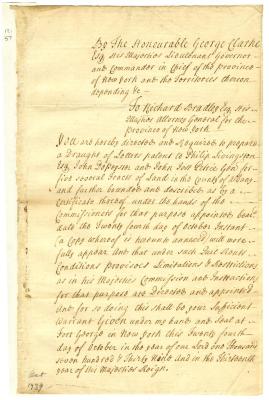 By The Honourable George Clarke
Esq. His Majesties Lieutenant Governor
and Commander in Chief of the province
of New York and the Territories thereon
depending &c
To Richard Bradley Esq. His
Majties Attorney General for the
Province of New York
You are hereby directed and Required to prepare
a Draught of Letters patent to Philip Livingston
Esq. John and John
several Tracts of Land in the County of Albany
and further bounded and described as by a
Certificate thereof under the hands of the
Commissioners for that purpose appointed bear
date the Twenty fourth day of October Instant
(a Copy whereof is hereunto annexed) will more
fully appear And that under such like Grants
Conditions provisoes Limitations & Restrictions
as in his Majesties Commission and Instructions
for that purpose are Directed and appointed
And for so doing this shall be your Sufficient
Warrant Given under my hand and Seal at
Fort George in New York this Twenty fourth
day of October in the year of our Lord one thousand
seven hundred & Thirty Nine and in the Thirteenth
year of his Majesties Reign.
1739